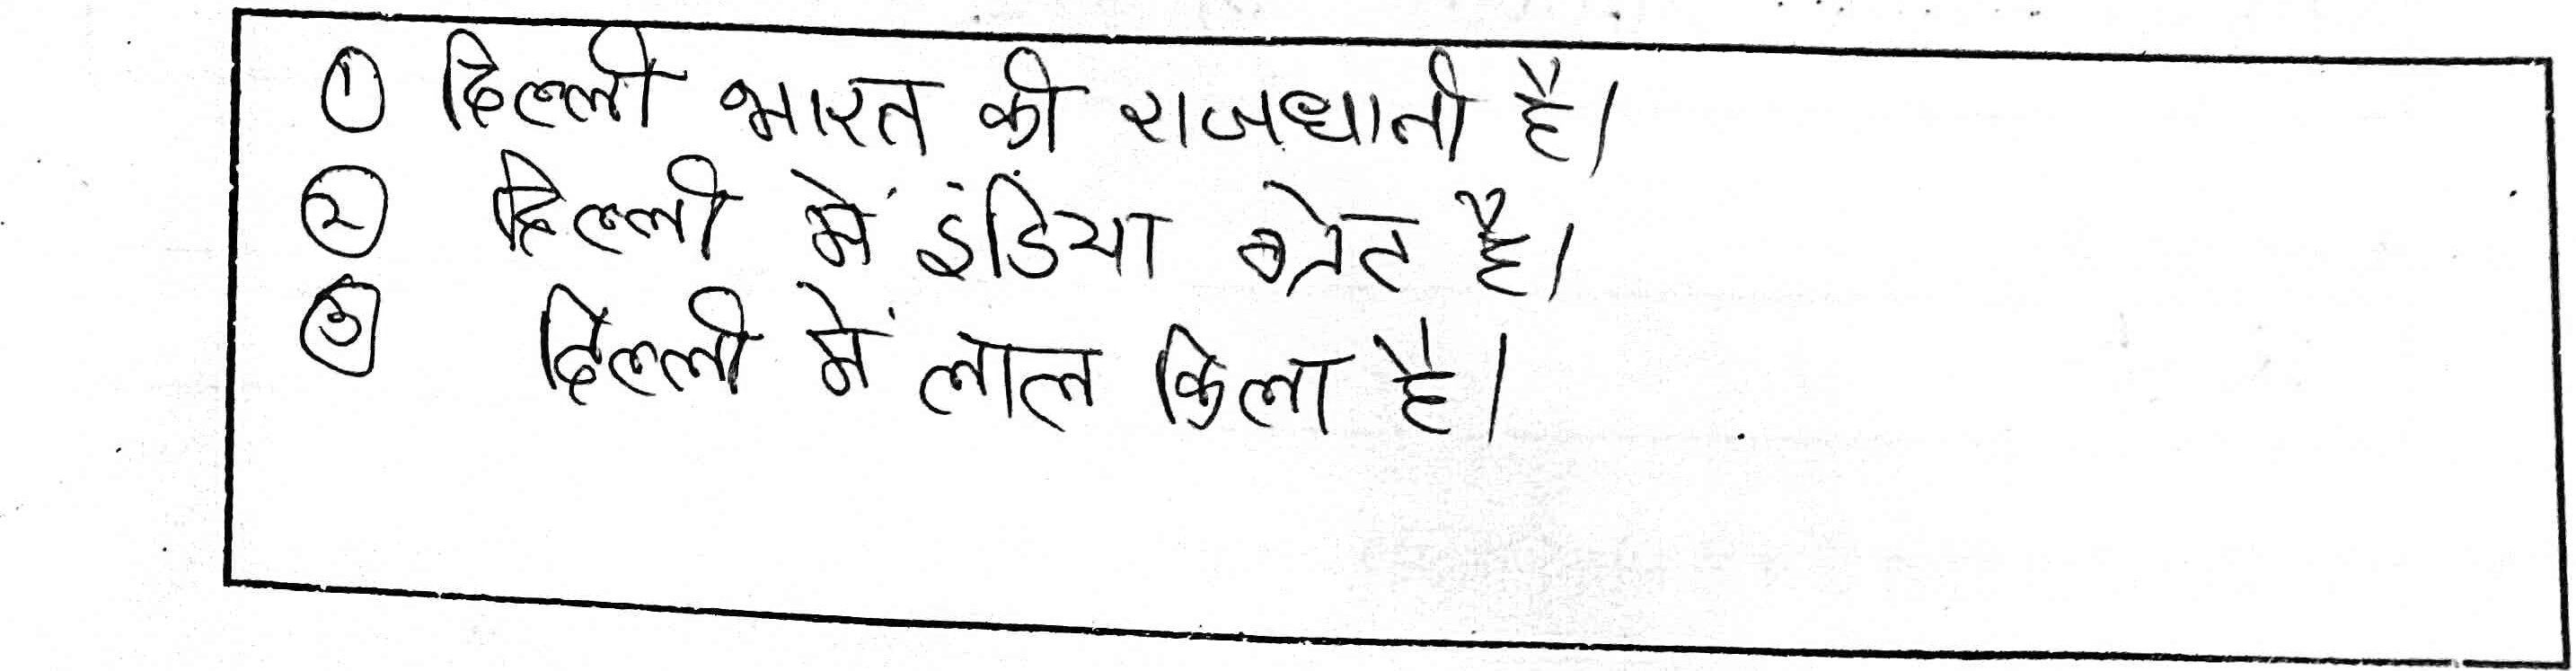 ① दिल्ली भारत की राजधानी है।
② दिल्ली में इंडिया गेट है।
③ दिल्ली में लाल किला है।